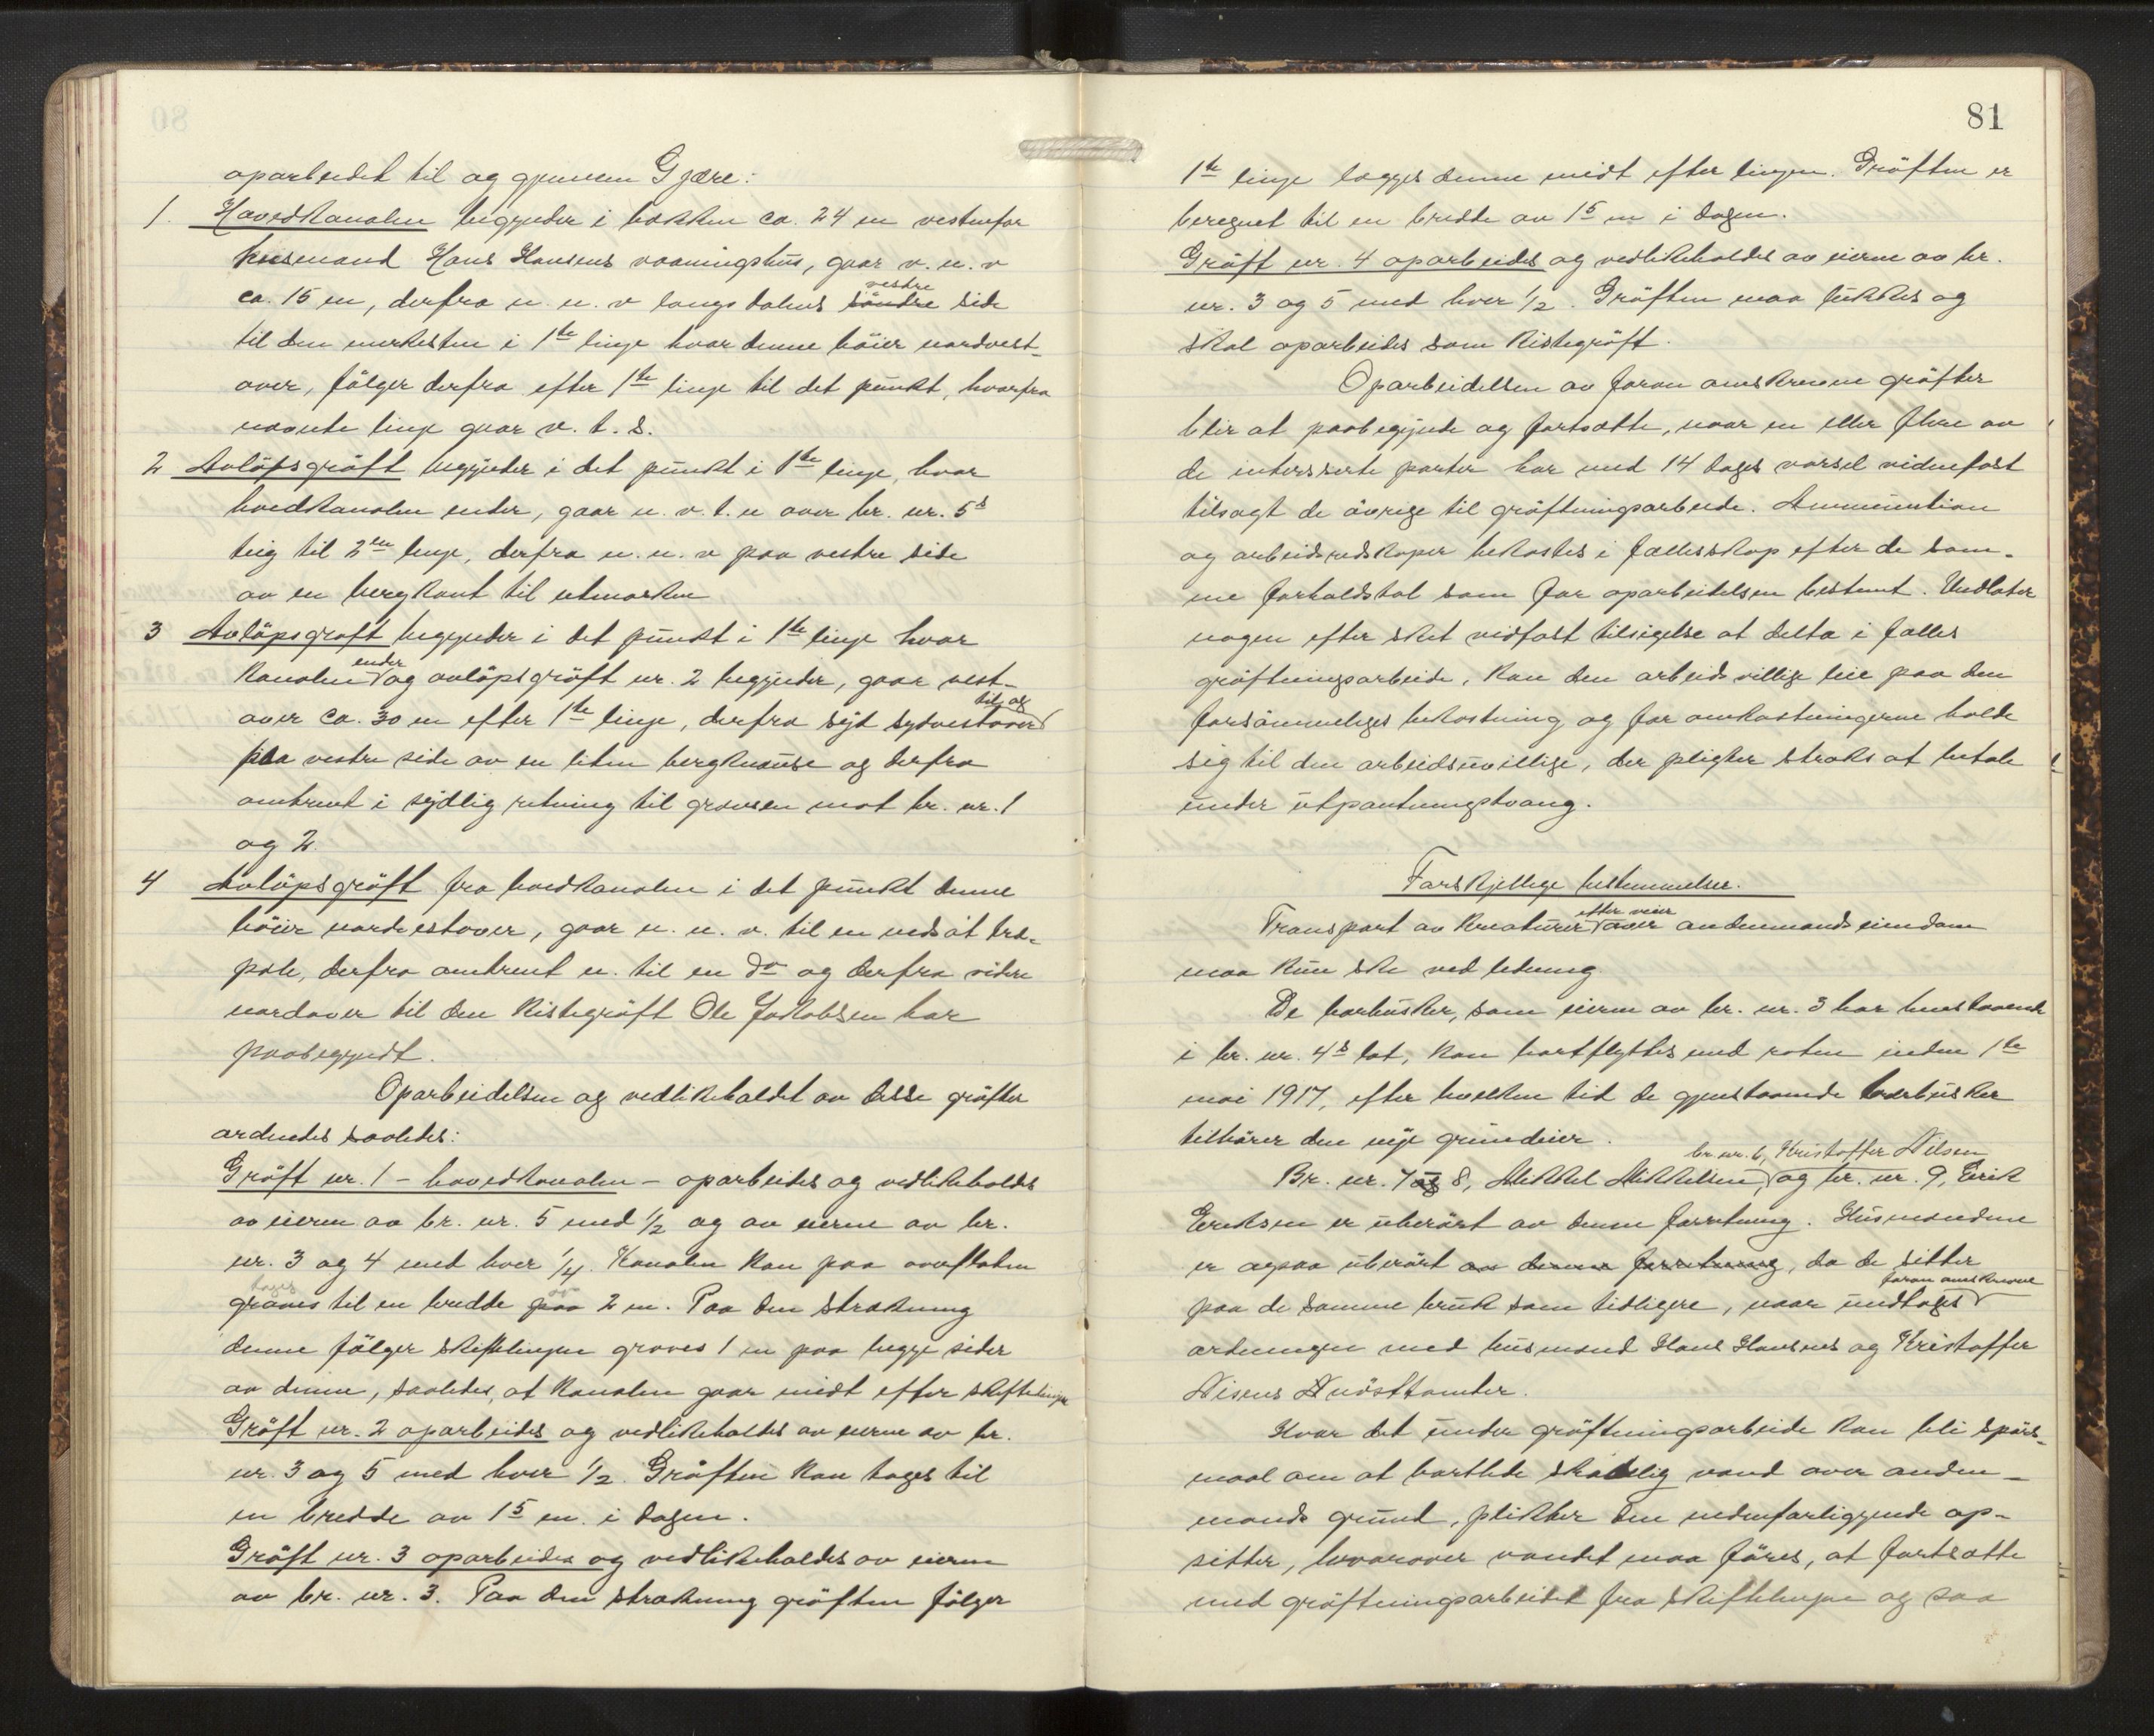 oparbeidet til og gjennem Gjære:
1. Hovedkanalen begynder i bækken ca. 24 m vestenfor
husmand Hans Hansens vaaningshus, gaar v. n. v
ca. 15 m, derfra n. n. v langs dalens søndre vestre side
til den merkesten i 1ste linje hvor denne böier nordvest-
over, fölger derfra efter 1ste linje til det punkt, hvorfra
nævnte linje gaar v. t. s.
2 Avlöpsgröft begynder i det punkt i 1ste linje, hvor
hovedkanalen ender, gaar n. v. t. n over br. nr. 5s
teig til 2den linje, derfra n. n. v paa vestre side
av en bergkant til utmarken
3 Avlöpsgröft begynder i det punkt i 1ste linje hvor
kanalen ender og avlöpsgröft nr. 2 begynder, gaar vest-
over ca. 30 m efter 1ste linje, derfra syd sydvestover til og
paa vestre side av en liten bergknause og derfra
omtrent i sydlig retning til grænsen mot br. nr. 1
og 2.
4 Avlöpsgröft fra hovedkanalen i det punkt denne
böier nordvestover, gaar n. n. v. til en nedsat træ-
pæle, derfra omtrent n. til en do og derfra videre
nordover til den kistegröft Ole Jakobsen har
paabegyndt.
Oparbeidelsen og vedlikeholdet av disse gröfter
ordnedes saaledes:
Gröft nr. 1 - hovedkanalen - oparbeides og vedlikeholdes
av eieren av br. nr. 5 med 1/2 og av eierne av br.
nr. 3 og 4 med hver 1/4. Kanalen kan paa overflaten
graves tages til en bredde paa av 2 m. Paa den strækning
denne fölger skiftelinjen graves 1 m paa begge sider
av denne, saaledes, at kanalen gaar midt efter skiftelinjen
Gröft nr. 2 oparbeides og vedlikeholdes av eierne av br.
nr. 3 og 5 med hver 1/2. Gröften kan tages til
en bredde av 15 m. i dagen.
Gröft nr. 3 oparbeides og vedlikeholdes av eieren
av br. nr. 3. Paa den strækning gröften fölger
81
1ste linje lægges denne midt efter linjen. Gröften er
beregnet til en bredde av 15 m i dagen.
Gröft nr. 4 oparbeides og vedlikeholdes av eierne av br.
nr. 3 og 5 med hver 1/2. Gröften maa lukkes og
skal oparbeides som kistegröft.
Oparbeidelsen av foran omskrevne gröfter
blir at paabegynde og fortsætte, naar en eller flere av
de interesserte parter har med 14 dages varsel vidnefast
tilsagt de övrige til gröftningsarbeide. Ammunition
og arbeidsredskaper bekostes i fællesskap efter de sam-
me forholdstal som for oparbeidelsen bestemt. Undlater
nogen efter sket vidfast tilsigelse at delta i fælles
gröftningsarbeide, kan den arbeidsvillige leie paa den
forsömmeliges bekostning og for omkostningerne holde
sig til den arbeidsuvillige, der pligter straks at betale
under utpantningstvang.
Forskjellige bestemmelser.
Transport av kreaturer efter veier over andenmands eiendom
maa kun ske ved leding.
De bærbusker, som eieren av br. nr. 3 har henstaaende
i br. nr. 4s lot, kan bortflyttes med roten inden 1ste
mai 1917, efter hvilken tid de gjenstaaende bærbusker
tilhörer den nye grundeier.
Br. nr. 7 og 8, Mikkel Mikkelsen, br. nr. 6, Kristoffer Nilsen og br. nr. 9, Erik
Eriksen er uberört av denne forretning. Husmændene
er ogsaa uberört av denne forretning, da de sitter
paa de samme bruk som tidligere, naar undtages foran omskrevne
ordningen med husmand Hans Hansens og Kristoffer
Nissens nösttomter.
Hvor det under gröftningsarbeide kan bli spörs-
maal om at bortlede skadelig vand over anden-
mands grund, plikter den nedenforliggende op-
sitter, hvorover vandet maa föres, at fortsætte
med gröftningsarbeidet fra skiftelinjen og saa